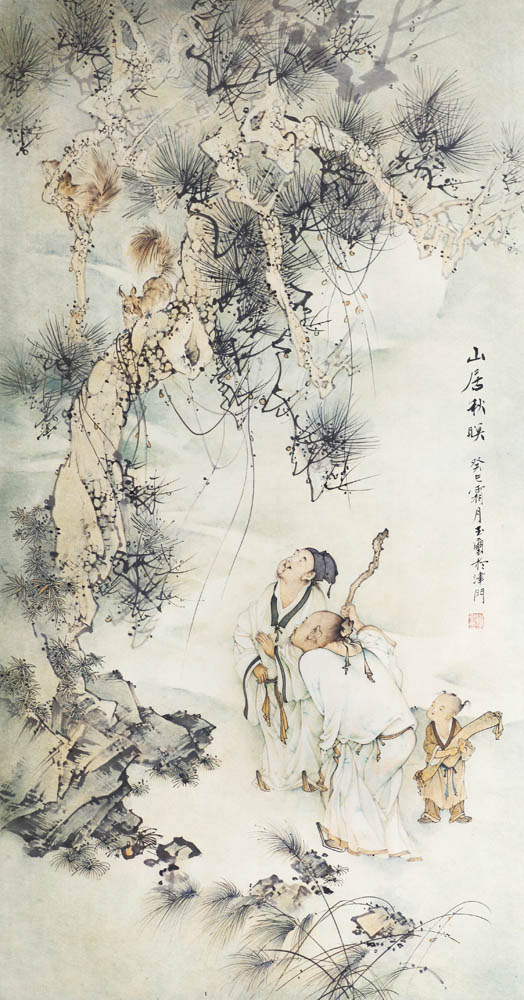 山居秋暝
癸巳霜月玉蘭於津門